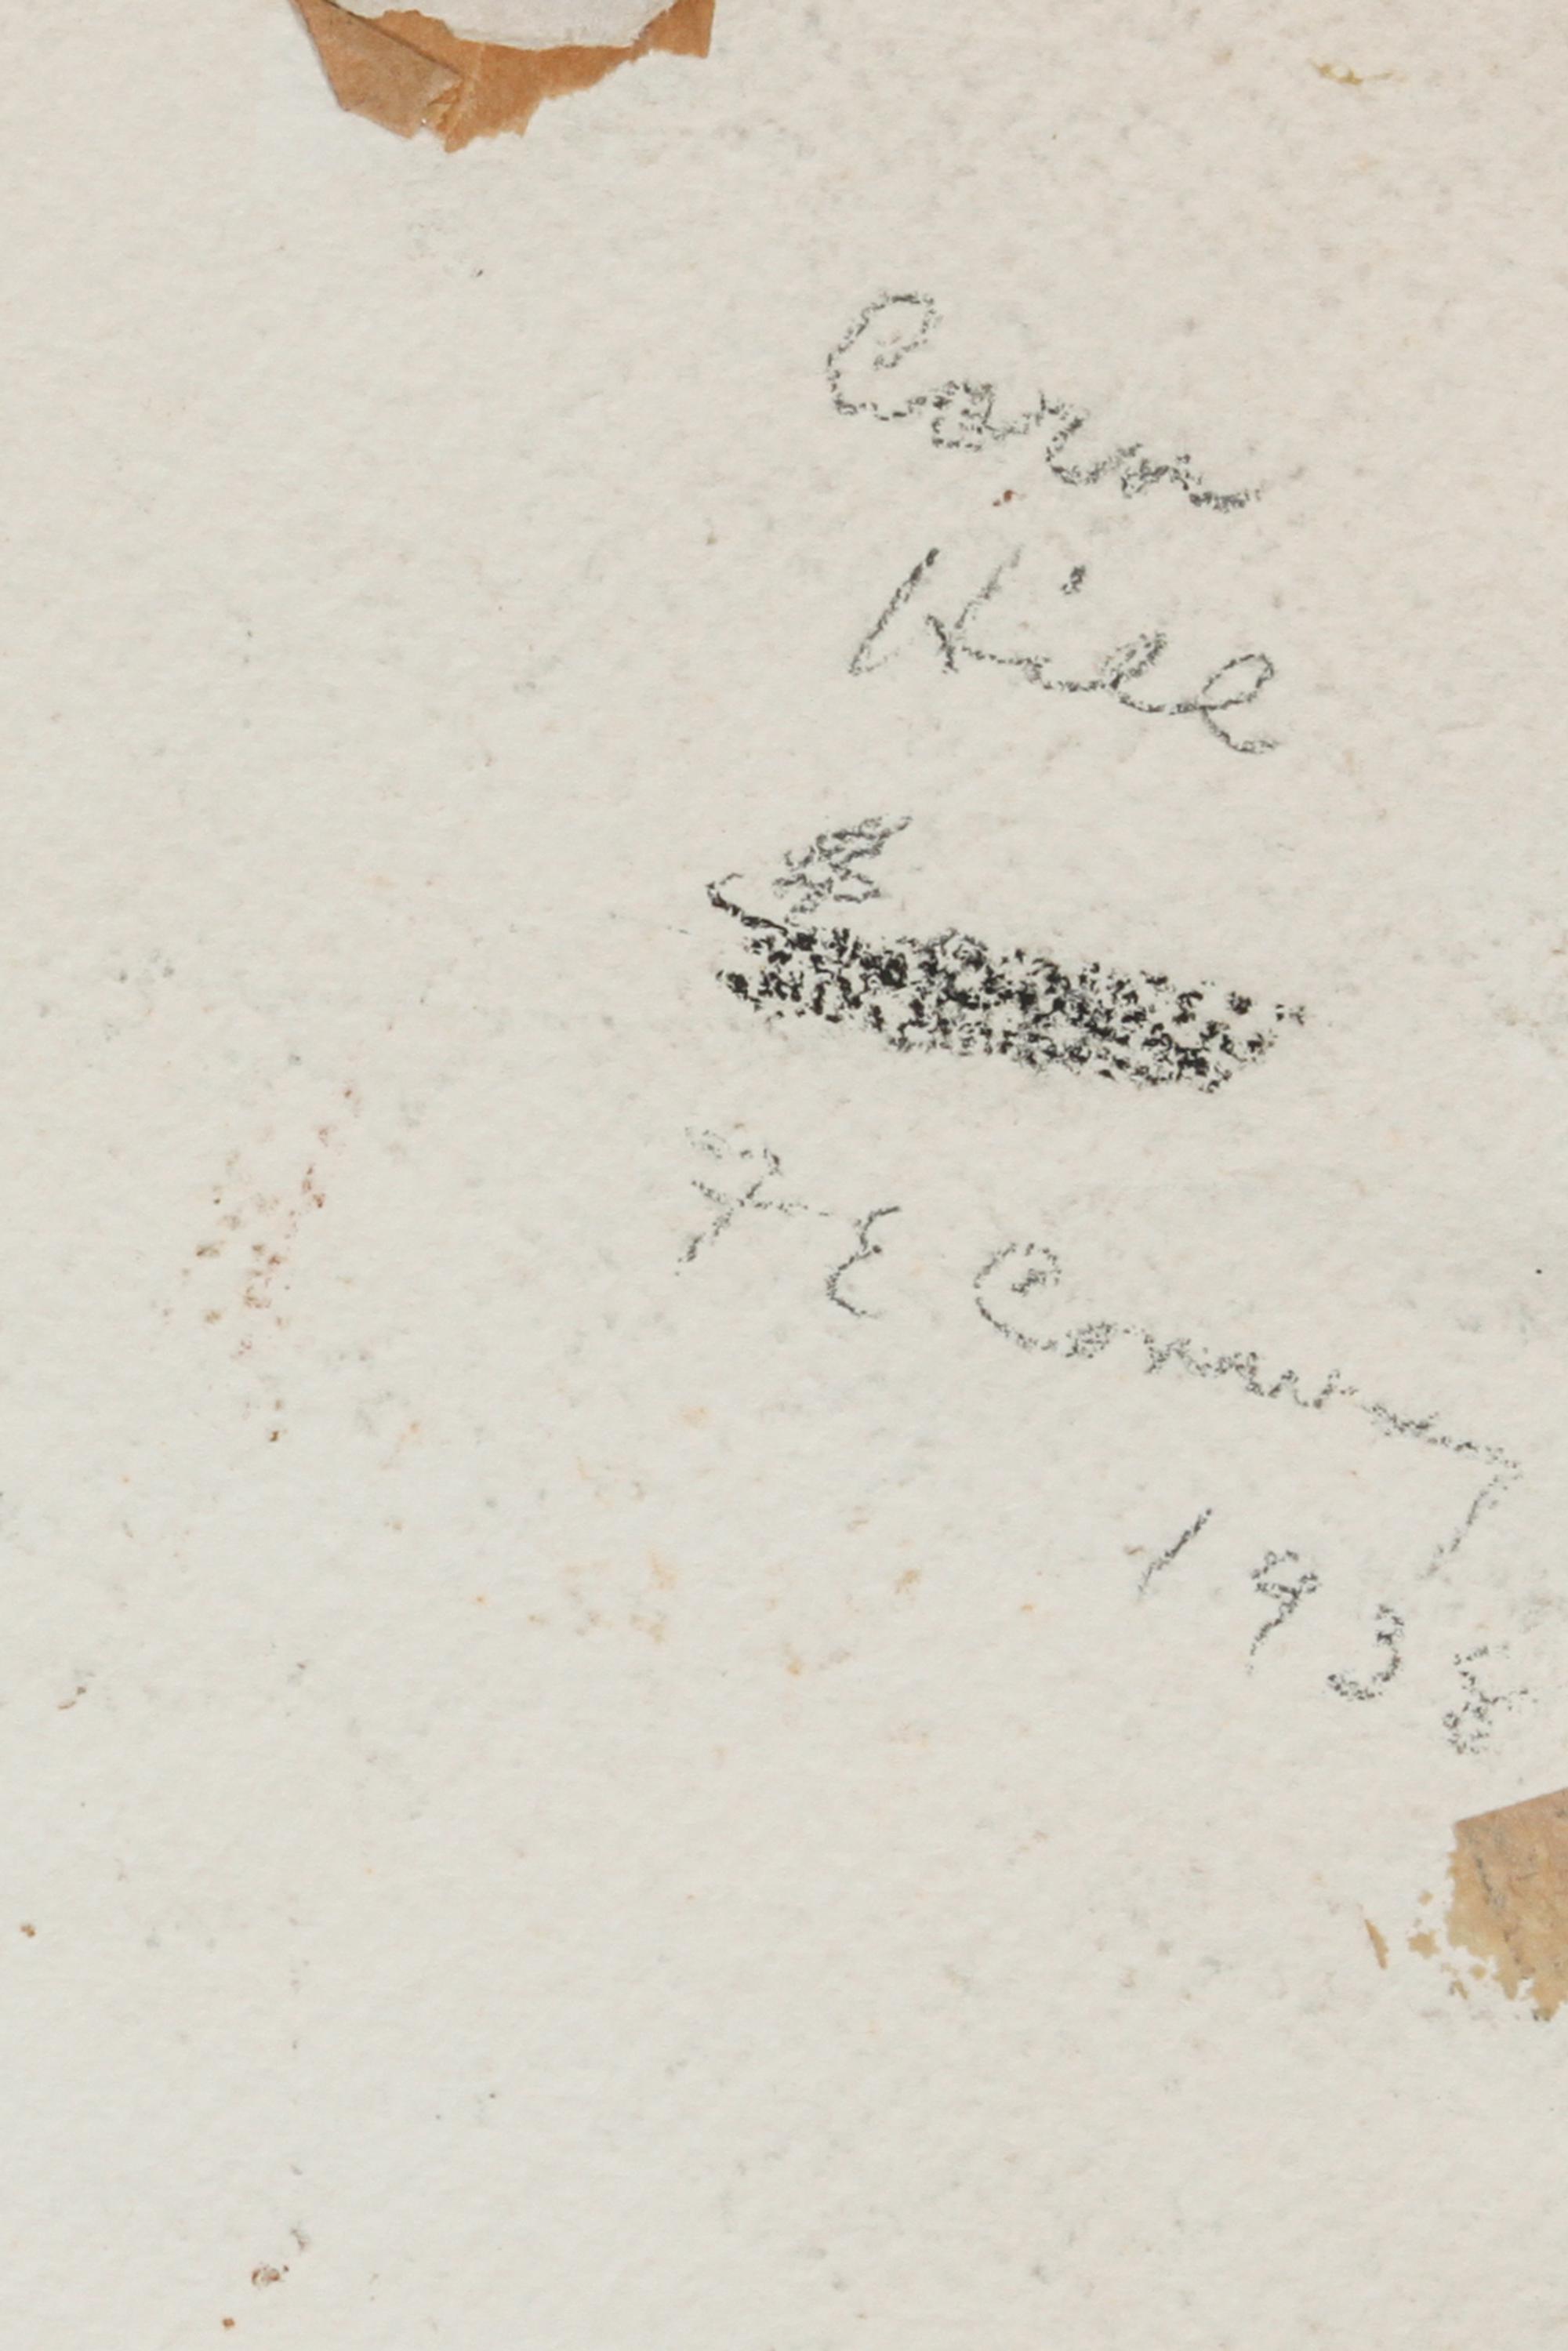 Corn
Hill
F E Conant
1938